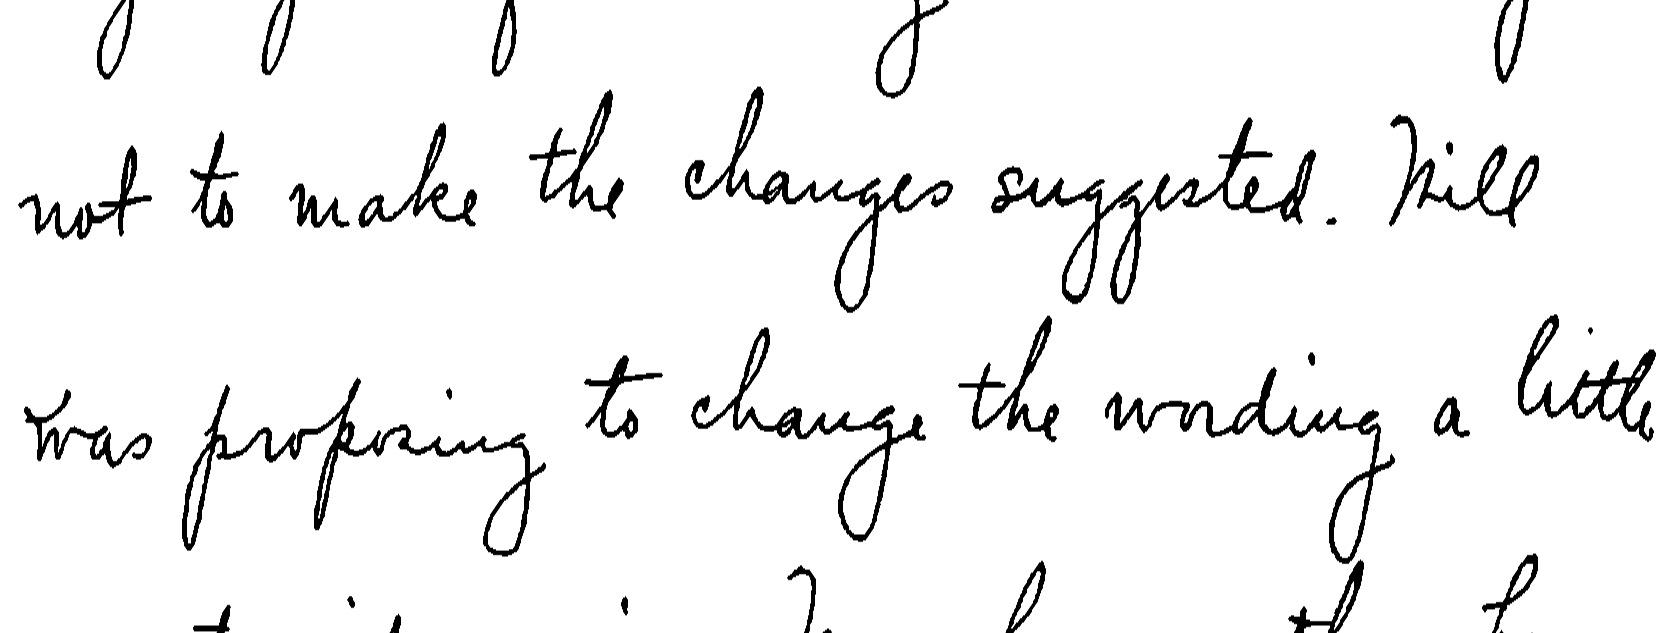 not to make the changes suggested. Will
was proposing to change the wording a little